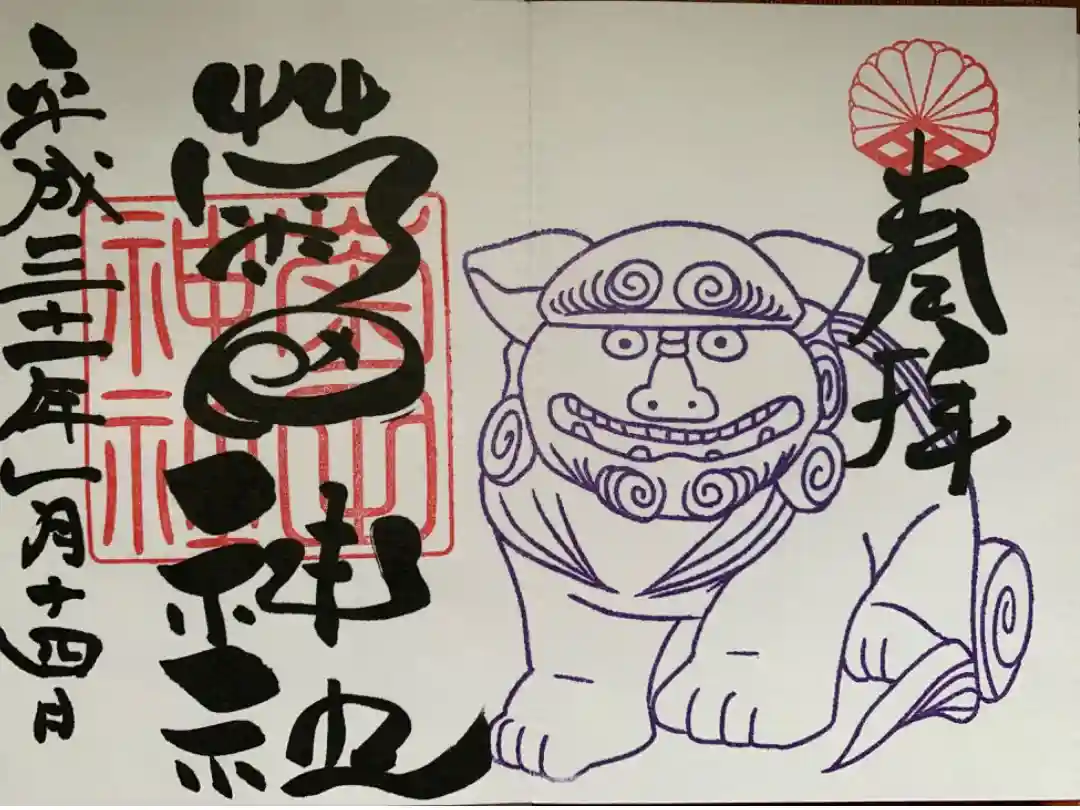 奉拝
菊田神社
菊田神社
平成三十一年一月十四日